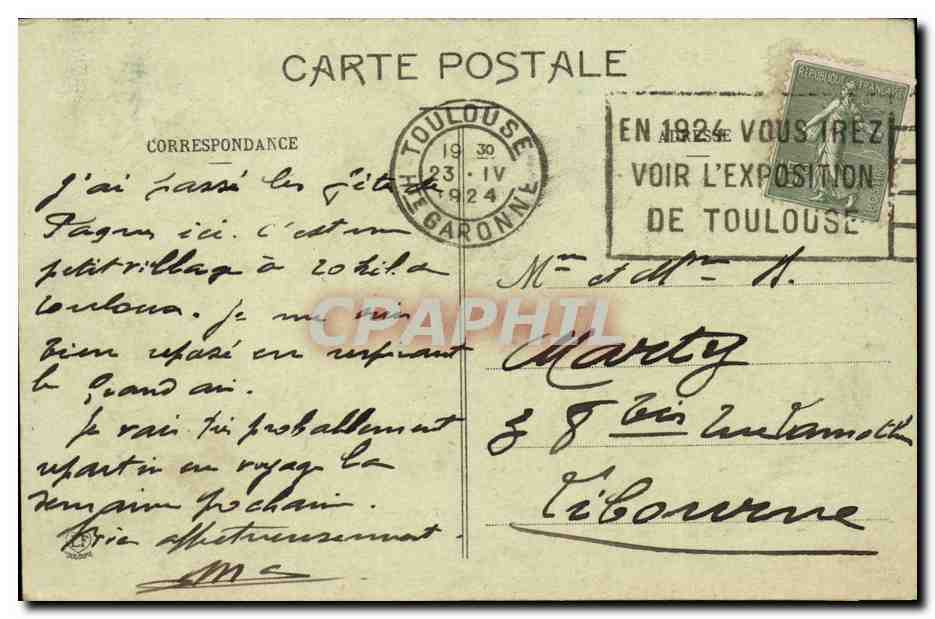 CARTE POSTALE
CORRESPONDANCE
ADRESSE
TOULOUSE
19 30
23 · IV
1924
Hte GARONNE
EN 1924 VOUS IREZ
VOIR L'EXPOSITION
DE TOULOUSE
REPUBLIQUE FRANÇAISE
J'ai passé les fêtes de
Paques ici. C'est un
petit village à 20 kil. de
Toulouse. Je me suis
bien reposé en respirant
le Grand air.
Je vais très probablement
repartir en voyage la
semaine prochaine.
affectueusement.
Mr et Mme A.
Marty
38 bis rue Lamothe
Libourne
CPAPHIL